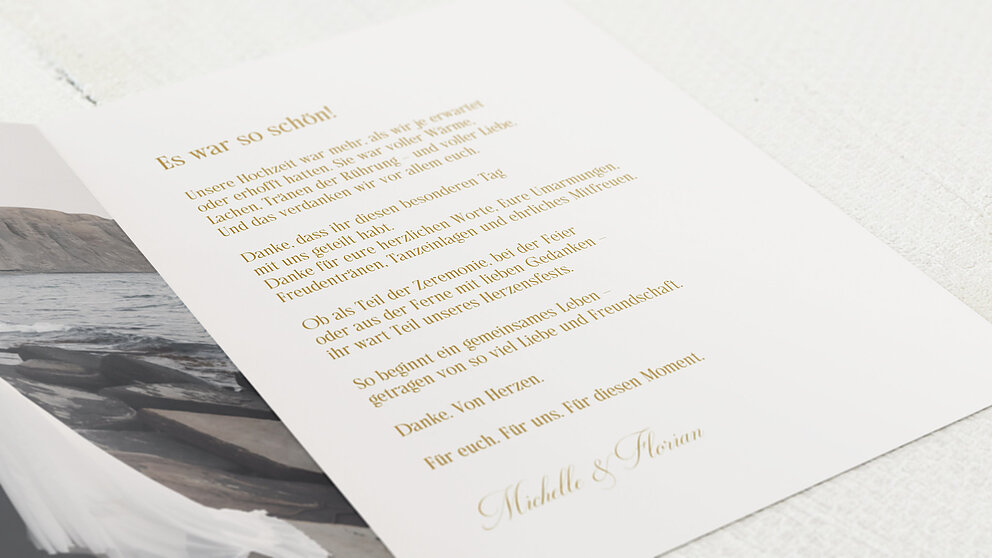 Es war so schön!
Unsere Hochzeit war mehr, als wir je erwartet
oder erhofft hatten. Sie war voller Wärme,
Lachen, Tränen der Rührung – und voller Liebe.
Und das verdanken wir vor allem euch
Danke, dass ihr diesen besonderen Tag
mit uns geteilt habt.
Danke für eure herzlichen Worte, Eure Umarmungen,
Freudentränen, Tanzeinlagen und ehrliches Mitfreuen.
Ob als Teil der Zeremonie, bei der Feier
oder aus der Ferne mit lieben Gedanken –
ihr wart Teil unseres Herzensfests.
So beginnt ein gemeinsames Leben –
getragen von so viel Liebe und Freundschaft.
Danke. Von Herzen.
Für euch. Für uns. Für diesen Moment.
Michelle & Florian